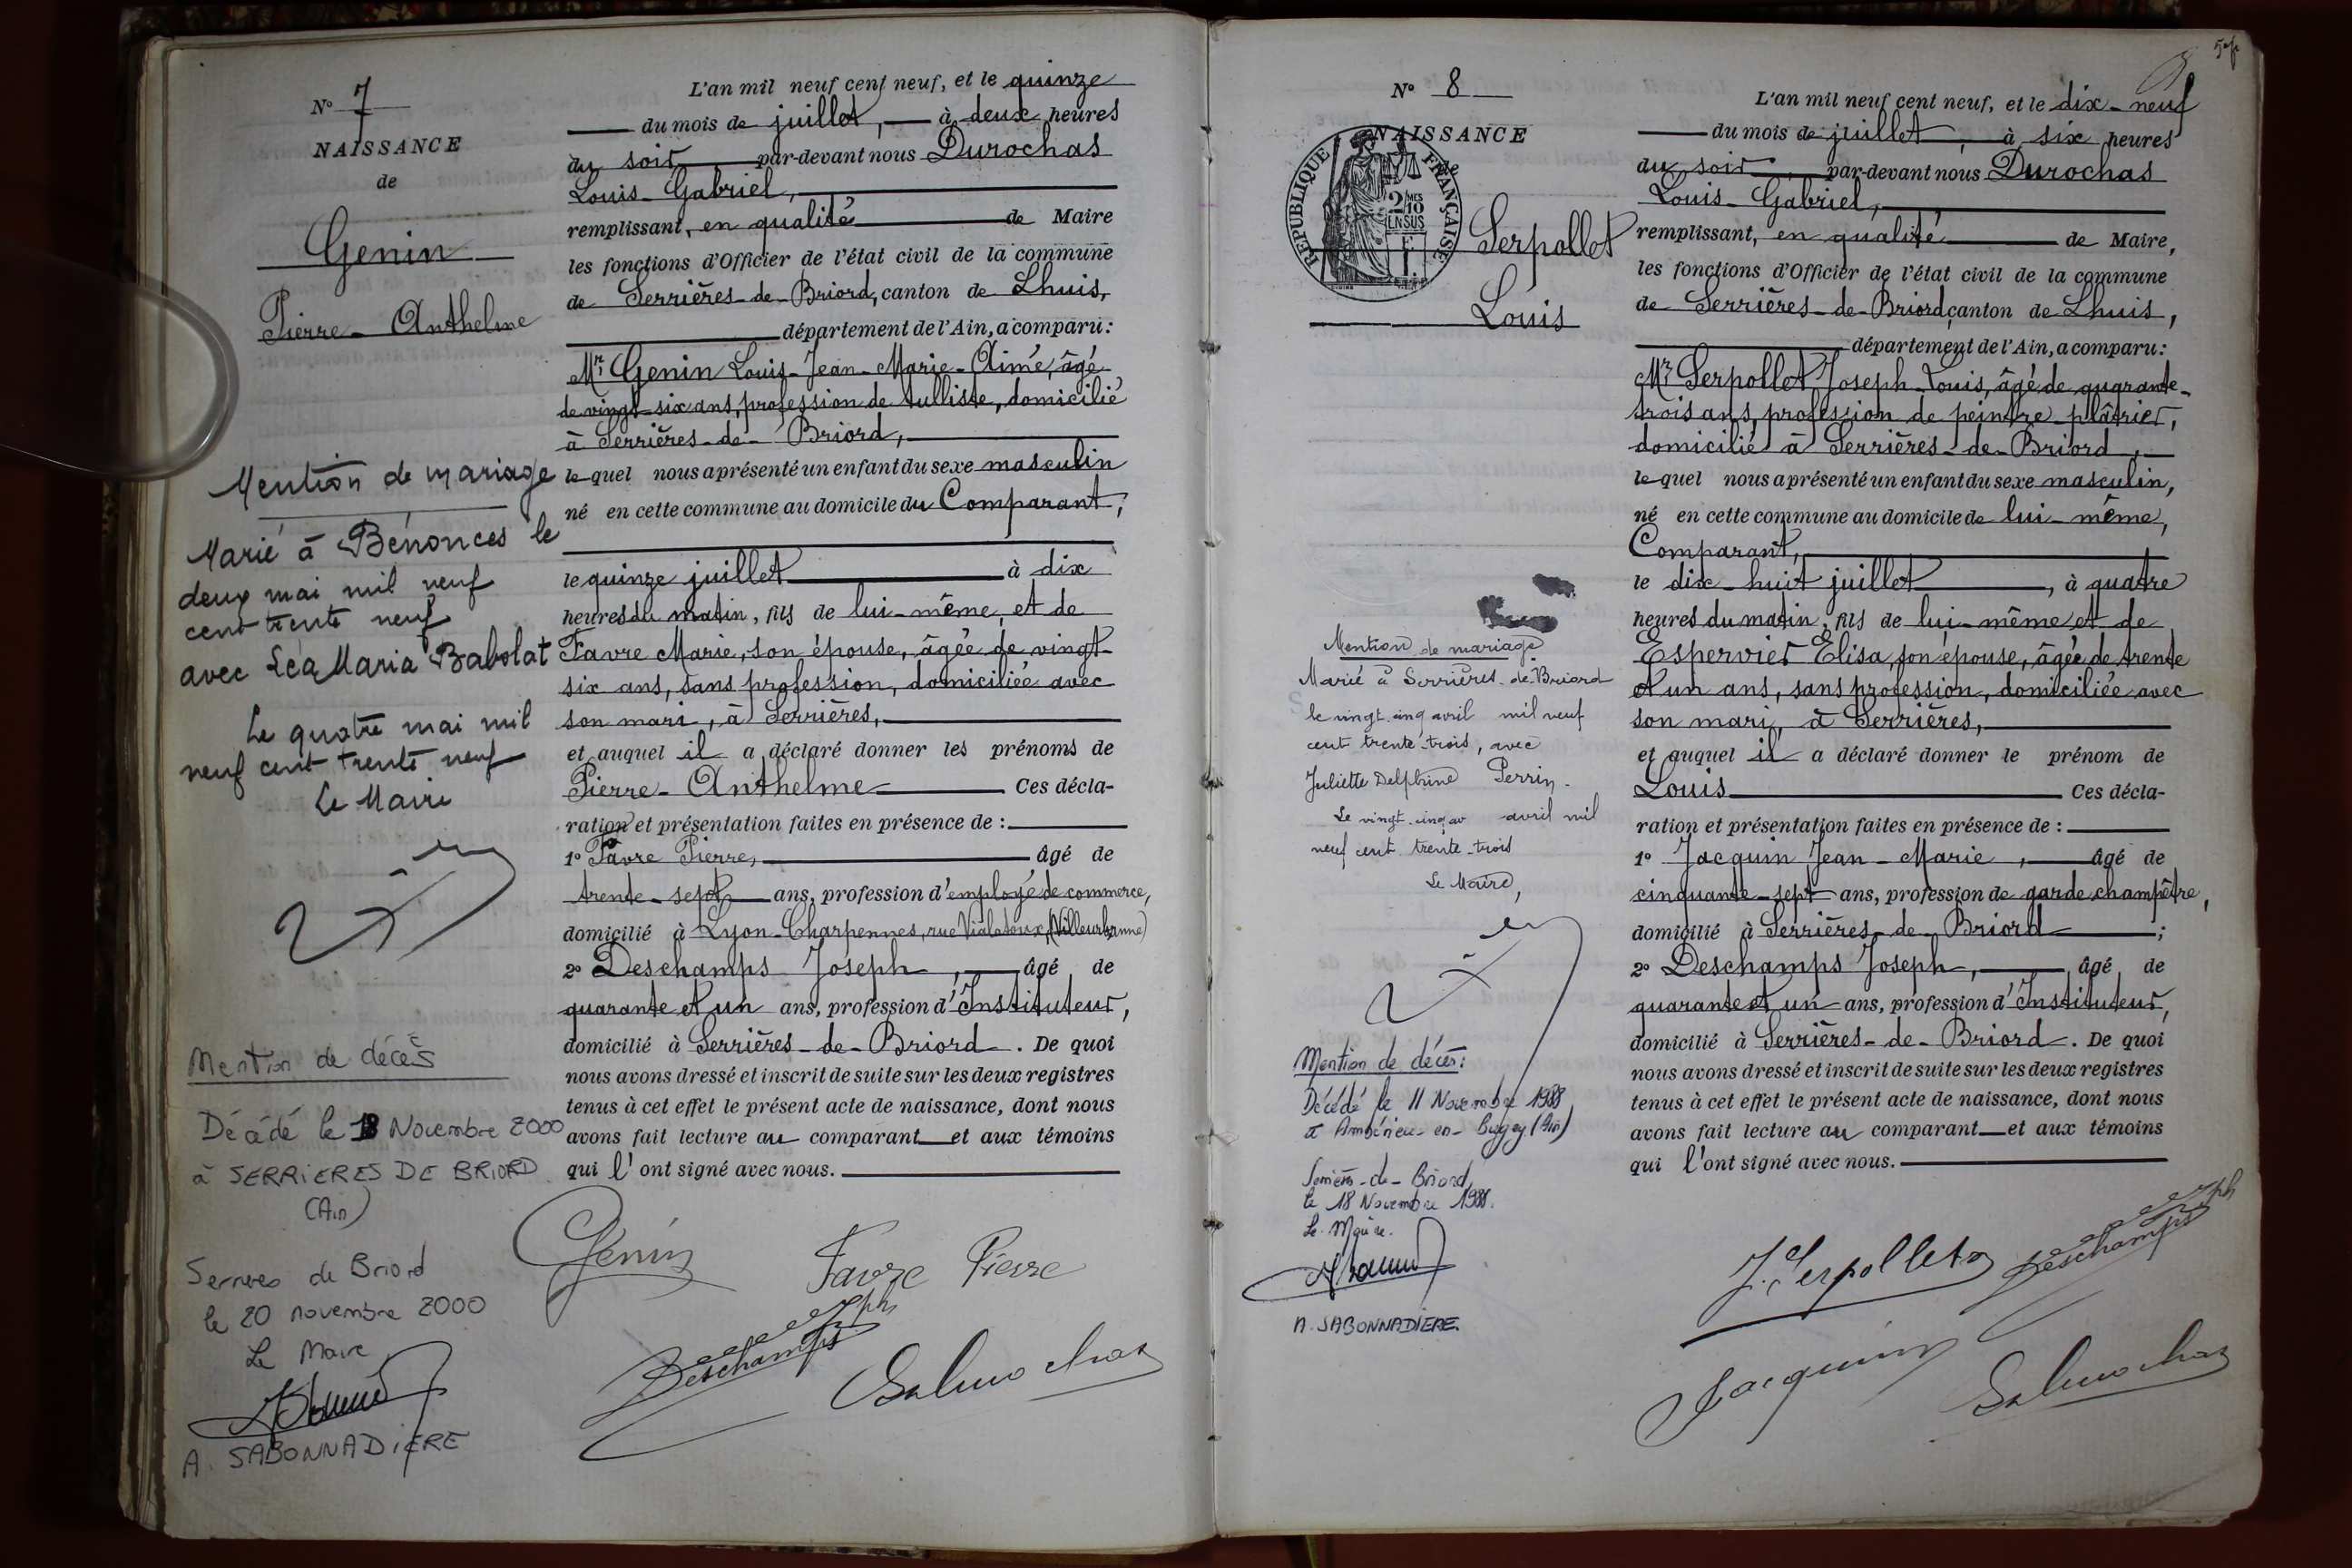 N° 7
NAISSANCE
de
Genin
Pierre-Anthelme
Mention de mariage
Marié à Bénonces le
deux mai mil neuf
cent trente neuf
avec Léa Maria Babolat
Le quatre mai mil
neuf cent trente neuf
Le Maire
Mention de décès
Décédé le 18 Novembre 2000
à SERRIERES DE BRIORD
(Ain)
Serrieres de Briord
le 20 novembre 2000
Le Maire
A. SABONNADIERE
L'an mil neuf cent neuf, et le quinze
du mois de juillet, à deux heures
du soir par-devant nous Durochas
Louis-Gabriel,
remplissant, en qualité de Maire
les fonctions d'Officier de l'état civil de la commune
de Serrières-de-Briord, canton de Lhuis,
département de l'Ain, a comparu:
Mr Genin Louis-Jean-Marie-Aimé, âgé
de vingt-six ans, profession de tulliste, domicilié
à Serrières-de-Briord,
lequel nous a présenté un enfant du sexe masculin
né en cette commune au domicile du Comparant,
le quinze juillet à dix
heures du matin, fils de lui-même, et de
Favre Marie, son épouse, âgée de vingt-
six ans, sans profession, domiciliée avec
son mari, à Serrières,
et auquel il a déclaré donner les prénoms de
Pierre-Anthelme Ces décla-
ration et présentation faites en présence de :
1° Favre Pierre, âgé de
trente-sept ans, profession d'employé de commerce,
domicilié à Lyon-Charpennes, rue Vialatoux, (Villeurbanne)
2° Deschamps Joseph, âgé de
quarante et un ans, profession d'Instituteur,
domicilié à Serrières-de-Briord. De quoi
nous avons dressé et inscrit de suite sur les deux registres
tenus à cet effet le présent acte de naissance, dont nous
avons fait lecture au comparant et aux témoins
qui l'ont signé avec nous.
Génin
Favre Pierre
Deschamps Jph
N° 8
NAISSANCE
de
REPUBLIQUE FRANÇAISE
2/10 MES
EN SUS
Serpollet
Louis
Mention de mariage
Marié à Serrières-de-Briord
le vingt-cinq avril mil neuf
cent trente-trois, avec
Juliette Delphine Perrin.
Le vingt-cinq av avril mil
neuf cent trente-trois
Le Maire,
Mention de décès:
Décédé le 11 Novembre 1988
à Ambérieu-en-Bugey (Ain)
Serrières-de-Briord,
le 18 Novembre 1988.
Le Maire.
A. SABONNADIERE.
L'an mil neuf cent neuf, et le dix-neuf
du mois de juillet, à six heures
du soir par-devant nous Durochas
Louis-Gabriel,
remplissant, en qualité de Maire,
les fonctions d'Officier de l'état civil de la commune
de Serrières-de-Briord, canton de Lhuis,
département de l'Ain, a comparu:
Mr Serpollet Joseph-Louis, âgé de quarante-
trois ans, profession de peintre-plâtrier,
domicilié à Serrières-de-Briord,
lequel nous a présenté un enfant du sexe masculin,
né en cette commune au domicile de lui-même,
Comparant,
le dix-huit juillet, à quatre
heures du matin, fils de lui-même et de
Espervier Elisa, son épouse, âgée de trente
et un ans, sans profession, domiciliée avec
son mari, à Serrières,
et auquel il a déclaré donner le prénom de
Louis Ces décla-
ration et présentation faites en présence de :
1° Jacquin Jean-Marie, âgé de
cinquante-sept ans, profession de garde champêtre,
domicilié à Serrières-de-Briord ;
2° Deschamps Joseph, âgé de
quarante et un ans, profession d'Instituteur,
domicilié à Serrières-de-Briord. De quoi
nous avons dressé et inscrit de suite sur les deux registres
tenus à cet effet le présent acte de naissance, dont nous
avons fait lecture au comparant et aux témoins
qui l'ont signé avec nous.
J. Serpollet
Deschamps Jph
Jacquin